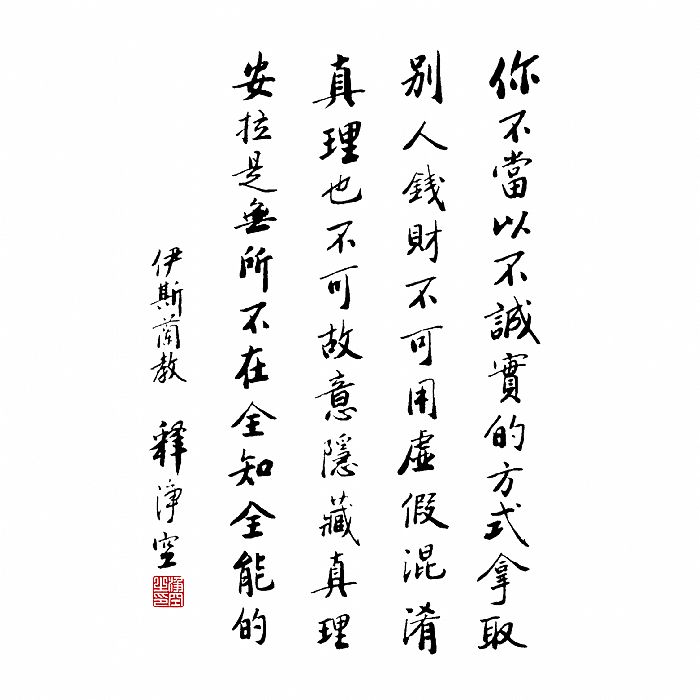 你不當以不誠實的方式拿取
別人錢財不可用虛假混淆
真理也不可故意隱藏真理
安拉是無所不在全知全能的
伊斯蘭教 釋淨空